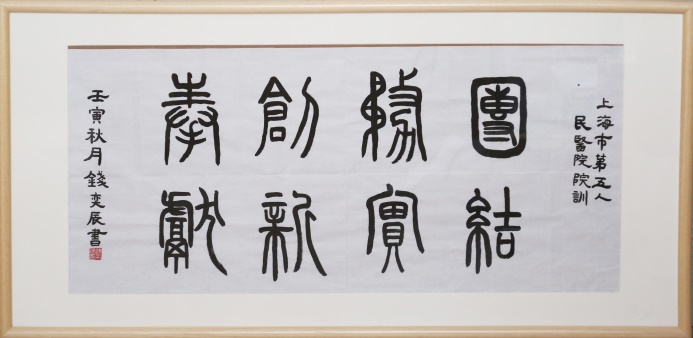 上海市第五人
民醫院院訓
團結
務實
創新
奉獻
壬寅秋月錢奕辰書